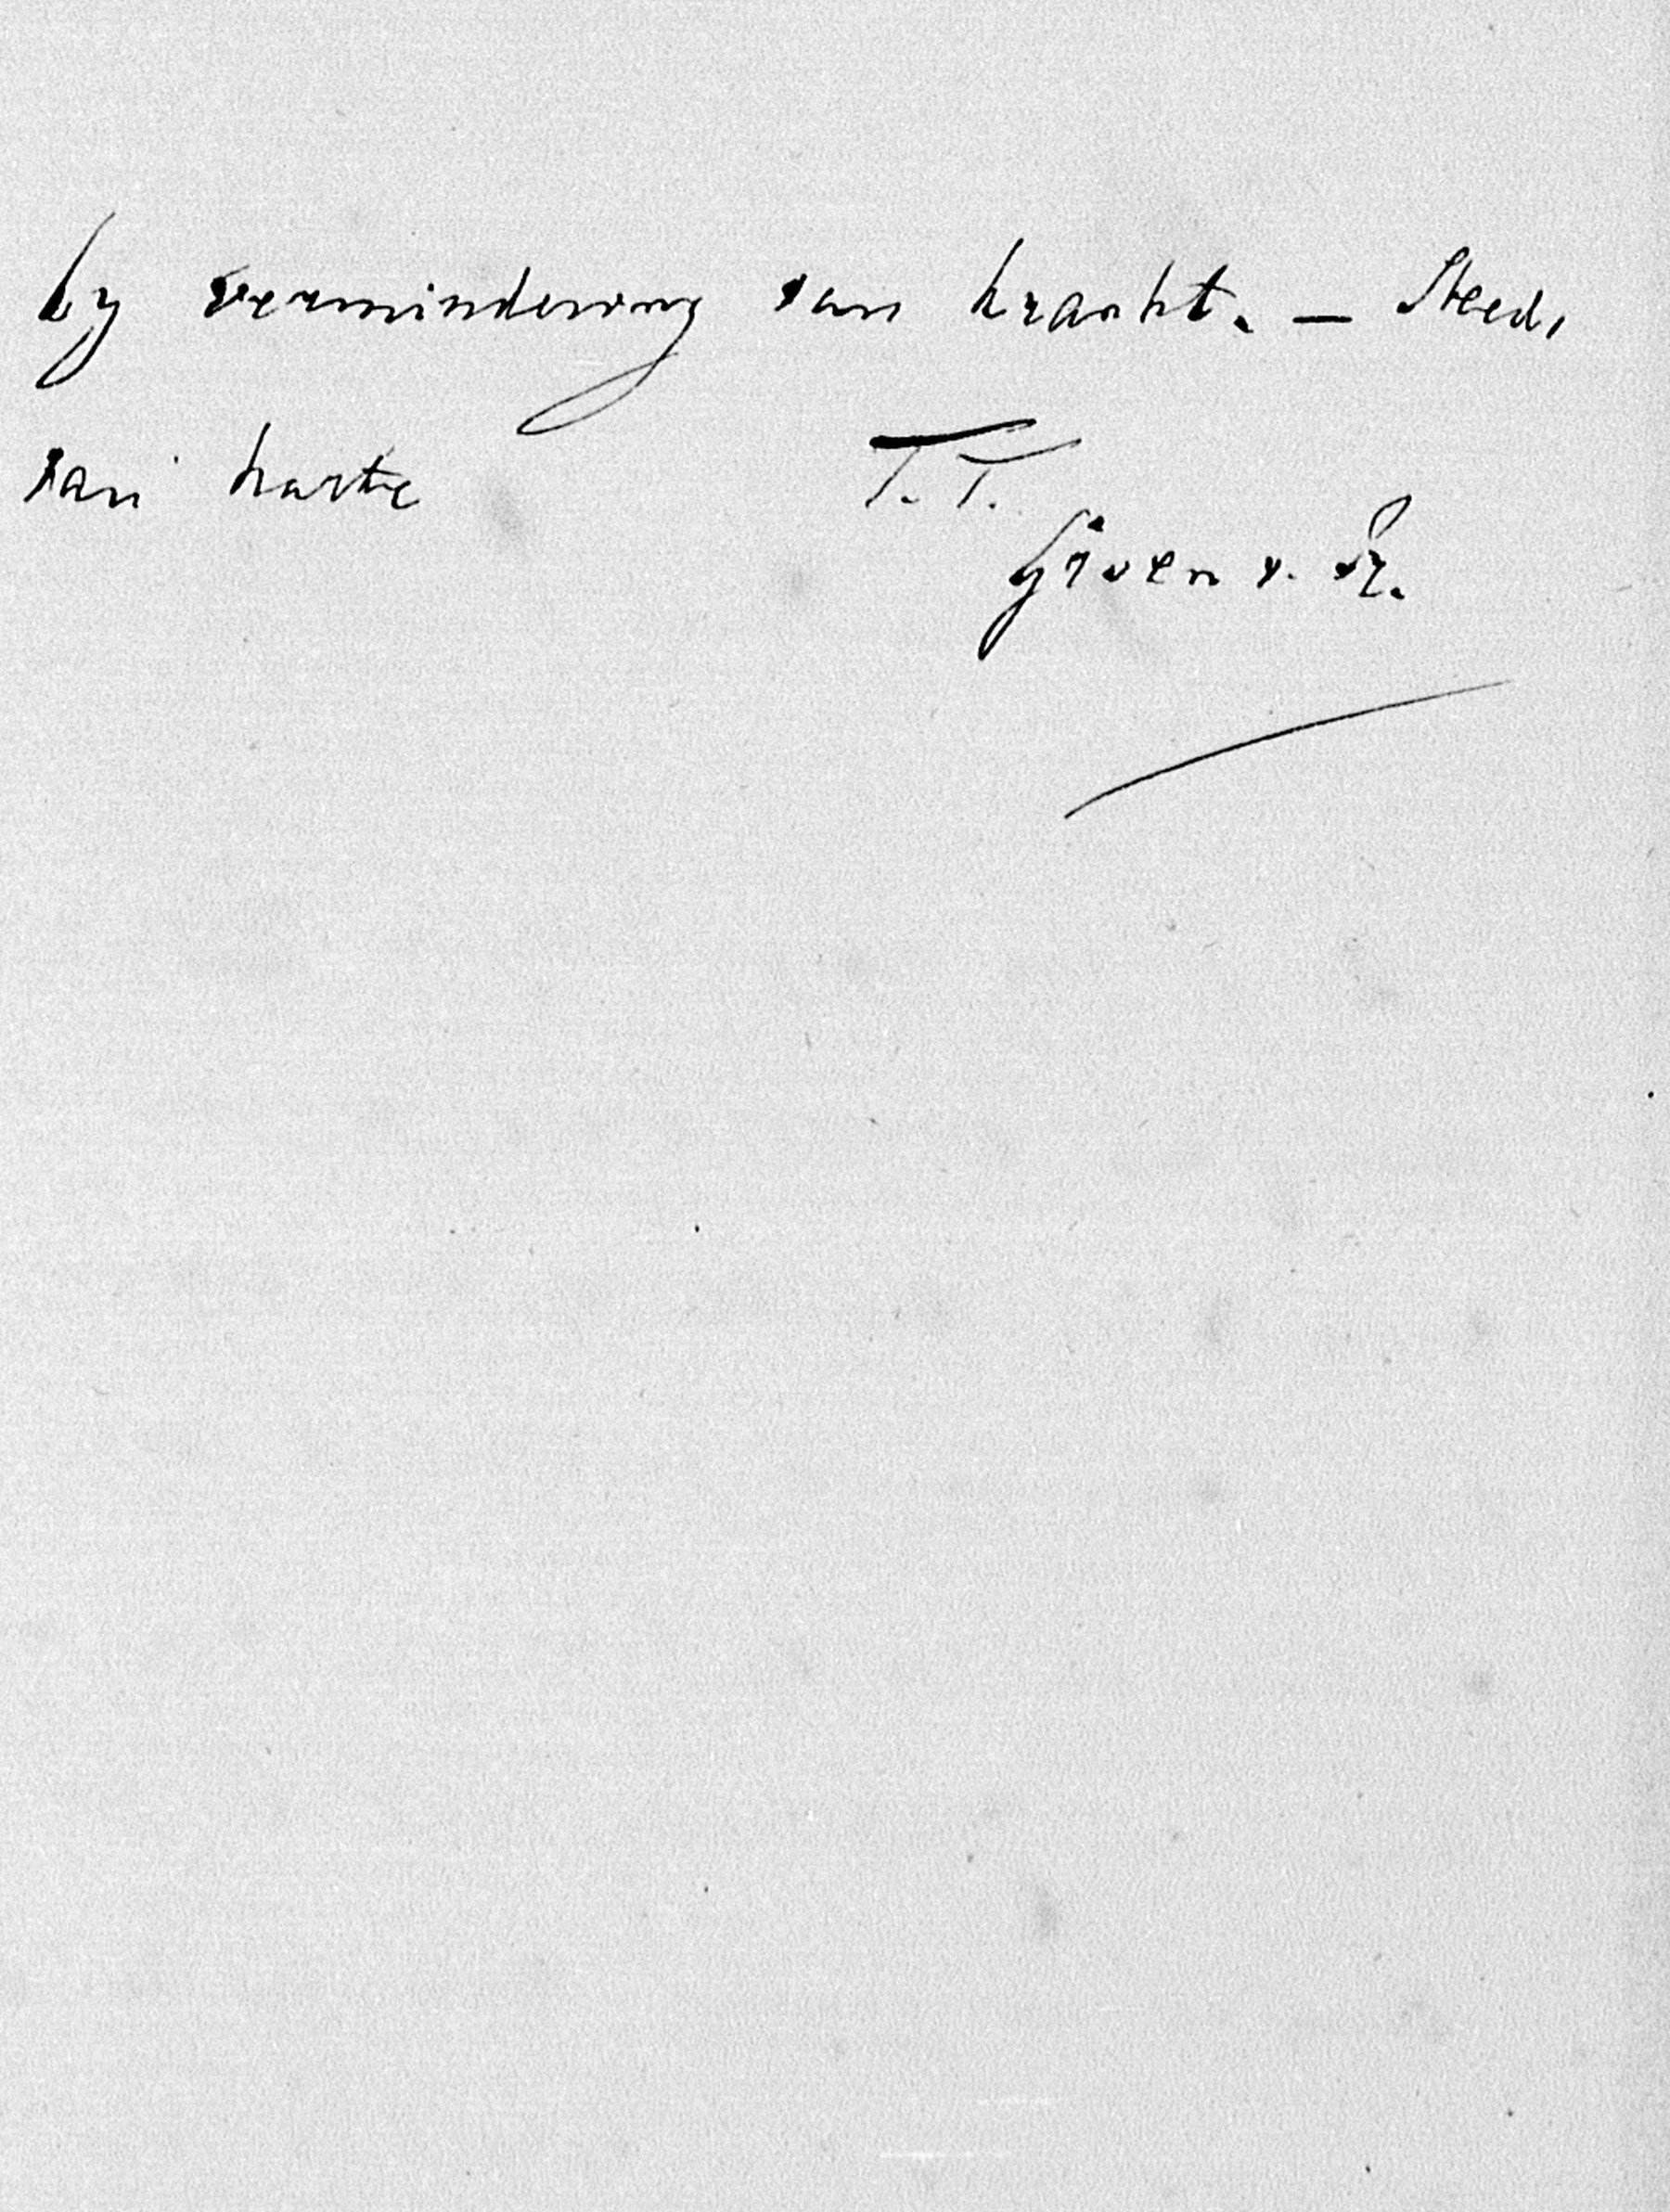 by vermindering van kracht. — Steeds
van harte T.T.
Groen v. Pr.